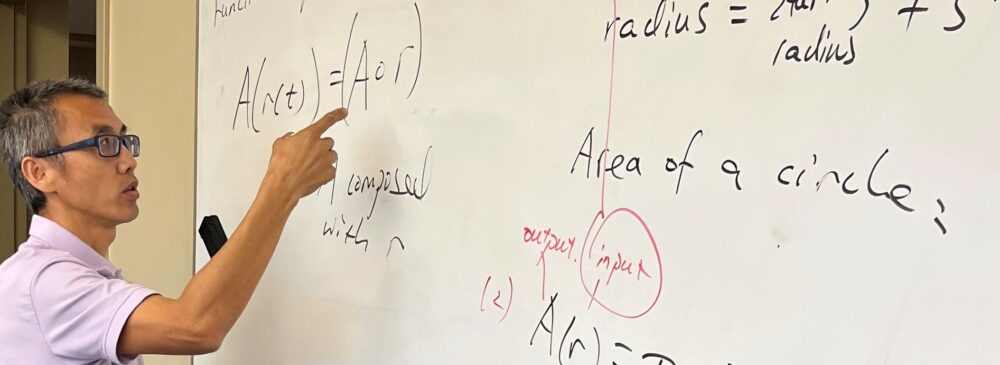 A(r(t)) = (A∘r)
composed
with r
radius = + 5
radius
Area of a circle:
output. input
(2) A(r) =